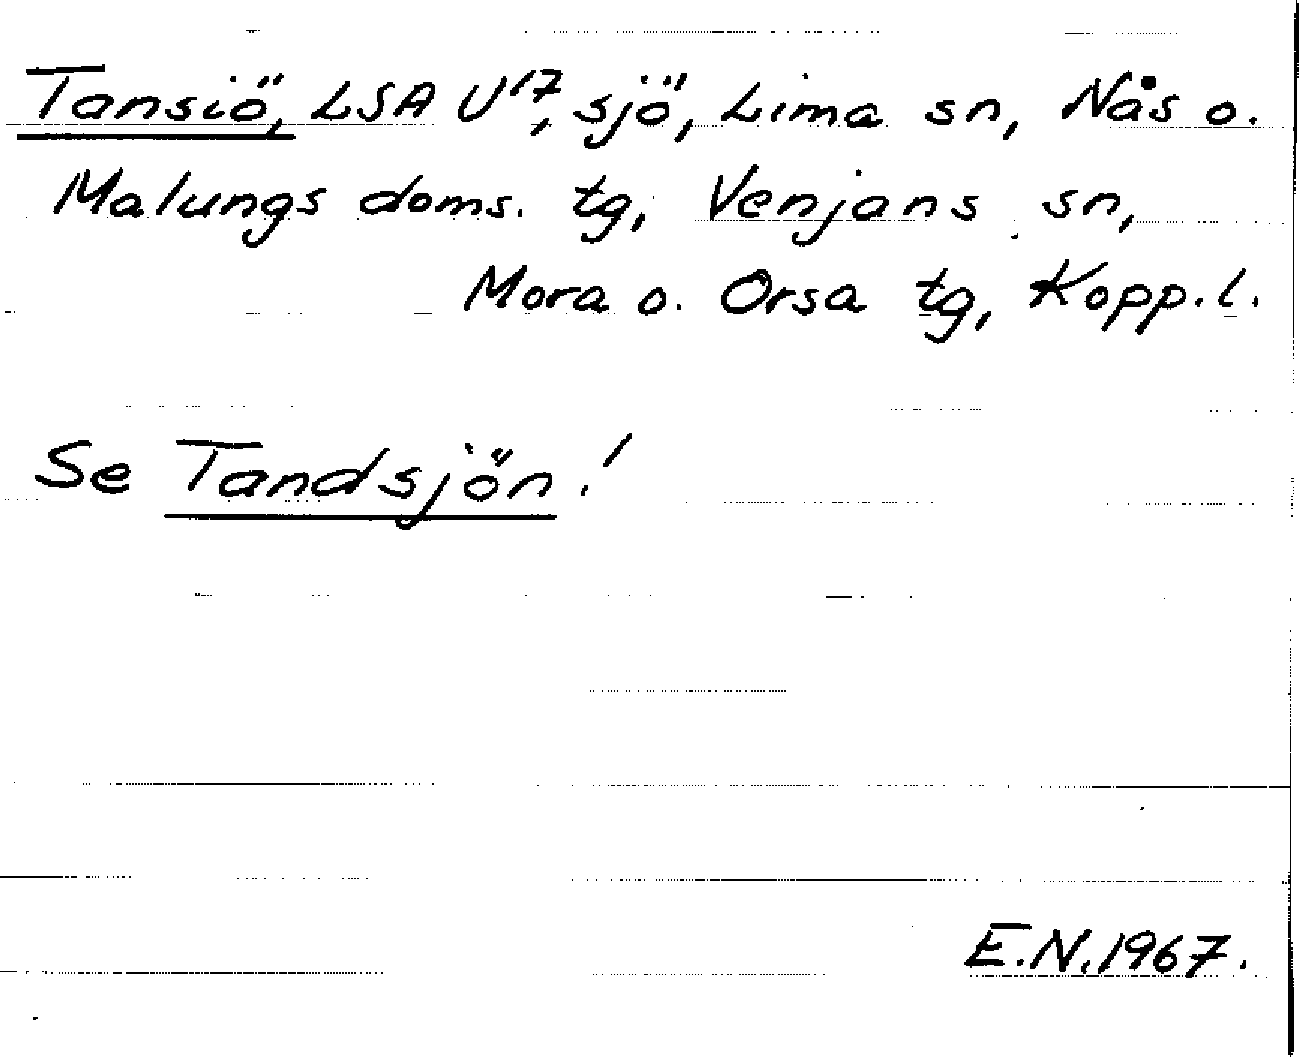 Tansiö, LSA U¹⁷, sjö, Lima sn, Nås o.
Malungs doms. tg, Venjans sn,
Mora o. Orsa tg, Kopp. l.
Se Tandsjön!
E.N. 1967.